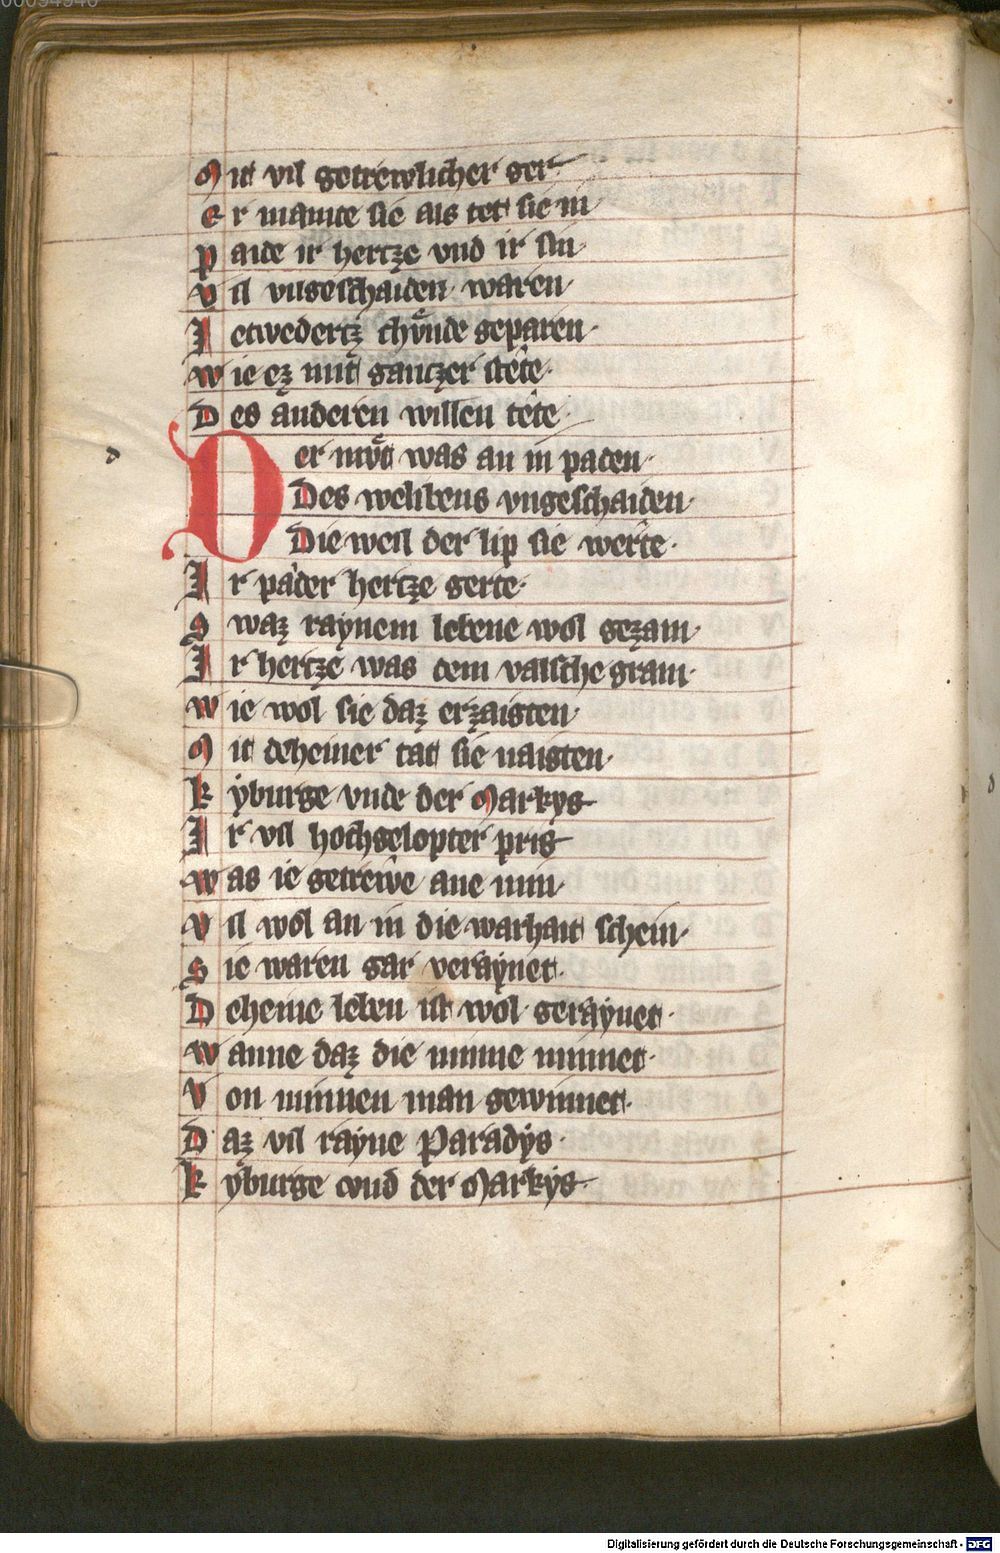 00094946
Mit vil getrewlicher ger
Er mainte sie als tet sie in
Paide ir hertze vnd ir sin
Vil vngeschaiden waren
Ietwedertz chvͦnde geparen
Wie ez mit gantzer stête
Des anderen willen tête
d
Der mvͦt was an in paden
Des welibens vngeschaiden
Die weil der lip sie werte
Ir pa͛der hertze gerte
Swaz raynem lebene wol gezam
Ir hertze was dem valsche gram
Wie wol sie daz erzaigten
Mit deheiner tat sie naigten
Kyburge vnde der Markys
Ir vil hochgelopter pris
Was ie getrewe ane min
Vil wol an in die warhait schein
Sie waren gar veraynet
Deheine leben ist wol geraynet
Wanne daz die minne minnet
Von minnen man gewinnet
Daz vil rayne Paradys
Kyburge vnd der Markys
Digitalisierung gefördert durch die Deutsche Forschungsgemeinschaft - DFG